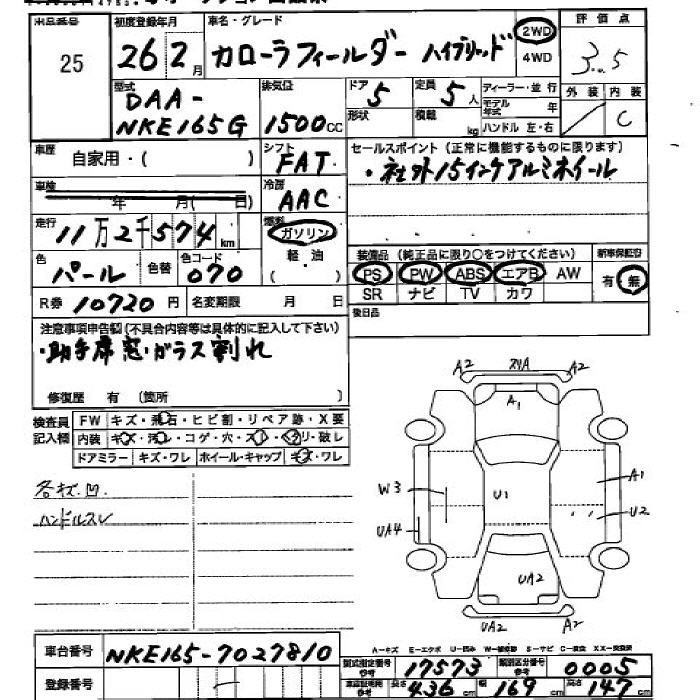 出品番号 25
初度登録年月 26 2月
車名・グレード カローラフィールダー ハイブリッド
2WD 4WD
評価点 3.5
外装 内装 C
型式 DAA-NKE165G
排気量 1500cc
ドア 5 形状
定員 5人 積載 kg
ディーラー・並行
モデル年式 年
ハンドル 左・右
車歴 自家用・( )
シフト FAT
セールスポイント(正常に機能するものに限ります)
・社外15インチアルミホイール
車検 年 月( 日)
冷房 AAC
走行 11万2千574km
燃料 ガソリン 軽油 ( )
色 パール 色替 色コード 070
装備品(純正品に限り○をつけてください)
PS PW ABS エアB AW
SR ナビ TV カワ
新車保証書 有・無
R券 10720円 名変期限 月 日
後日品
注意事項申告欄(不具合内容等は具体的に記入して下さい)
・助手席窓・ガラス割れ
修復歴 有 (箇所 )
検査員記入欄
FW キズ・飛石・ヒビ割・リペア跡・X要
内装 キズ・汚レ・コゲ・穴・スレ・クリ・破レ
ドアミラー キズ・ワレ ホイール・キャップ キズ・ワレ
各キズ.凹.
ハンドルスレ
A2 A2
A1
W3 U1 A1
UA4 U2
UA2
UA2 A2
A-キズ E-エクボ U-凹み W-補修跡 S-サビ C-腐食 XX-交換済
車台番号 NKE165-7027810
登録番号 -
型式指定番号 参考 17573 類別区分番号 参考 0005
長さ 436cm 幅 169cm 高さ 147cm